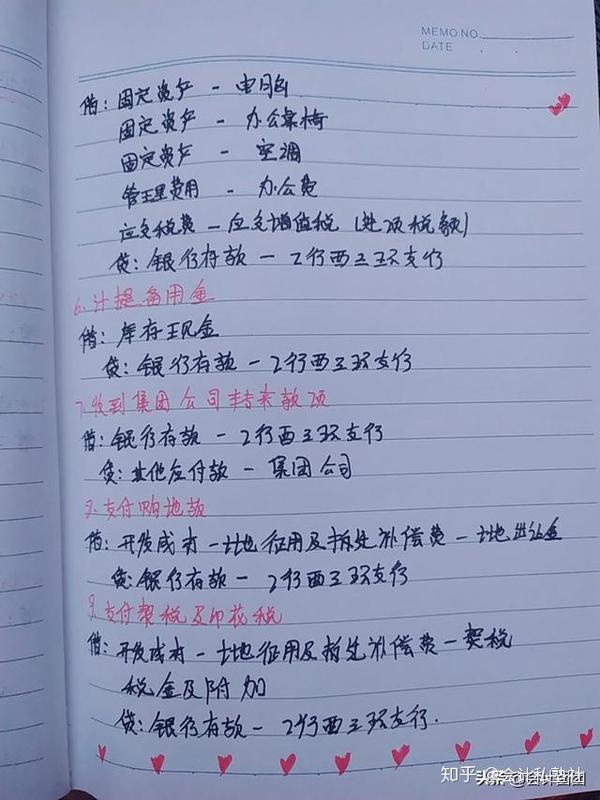 MEMO NO.
DATE
借：固定资产 - 电脑
固定资产 - 办公靠椅
固定资产 - 空调
管理费用 - 办公费
应交税费 - 应交增值税（进项税额）
贷：银行存款 - 工行西三环支行
6、计提备用金
借：库存现金
贷：银行存款 - 工行西三环支行
7、收到集团公司转来款项
借：银行存款 - 工行西三环支行
贷：其他应付款 - 集团公司
8、支付购地款
借：开发成本 - 土地征用及拆迁补偿费 - 土地出让金
贷：银行存款 - 工行西三环支行
9、支付契税及印花税
借：开发成本 - 土地征用及拆迁补偿费 - 契税
税金及附加
贷：银行存款 - 工行西三环支行.
知乎 @会计私塾社
头条 @会计囡囡